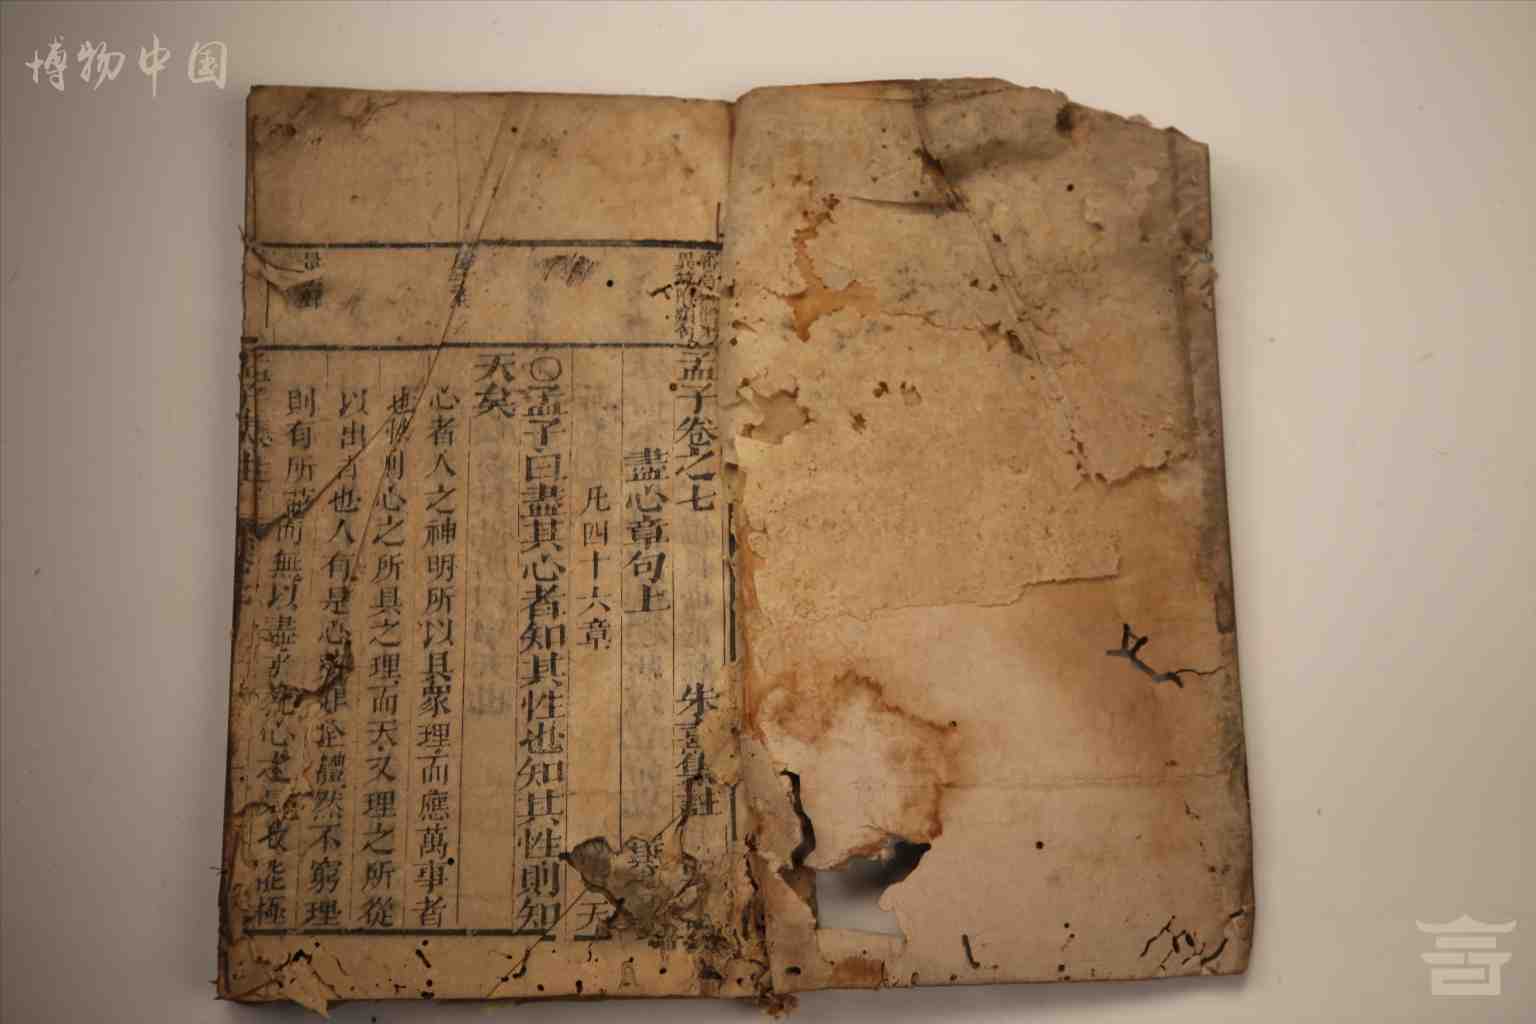 博物中国
孟子卷之七 朱熹集註
盡心章句上
凡四十六章
○孟子曰盡其心者知其性也知其性則知
天矣
心者人之神明所以具眾理而應萬事者
也性則心之所具之理而天又理之所從
以出者也人有是心莫非全體然不窮理
則有所蔽而無以盡乎此心之量故能極